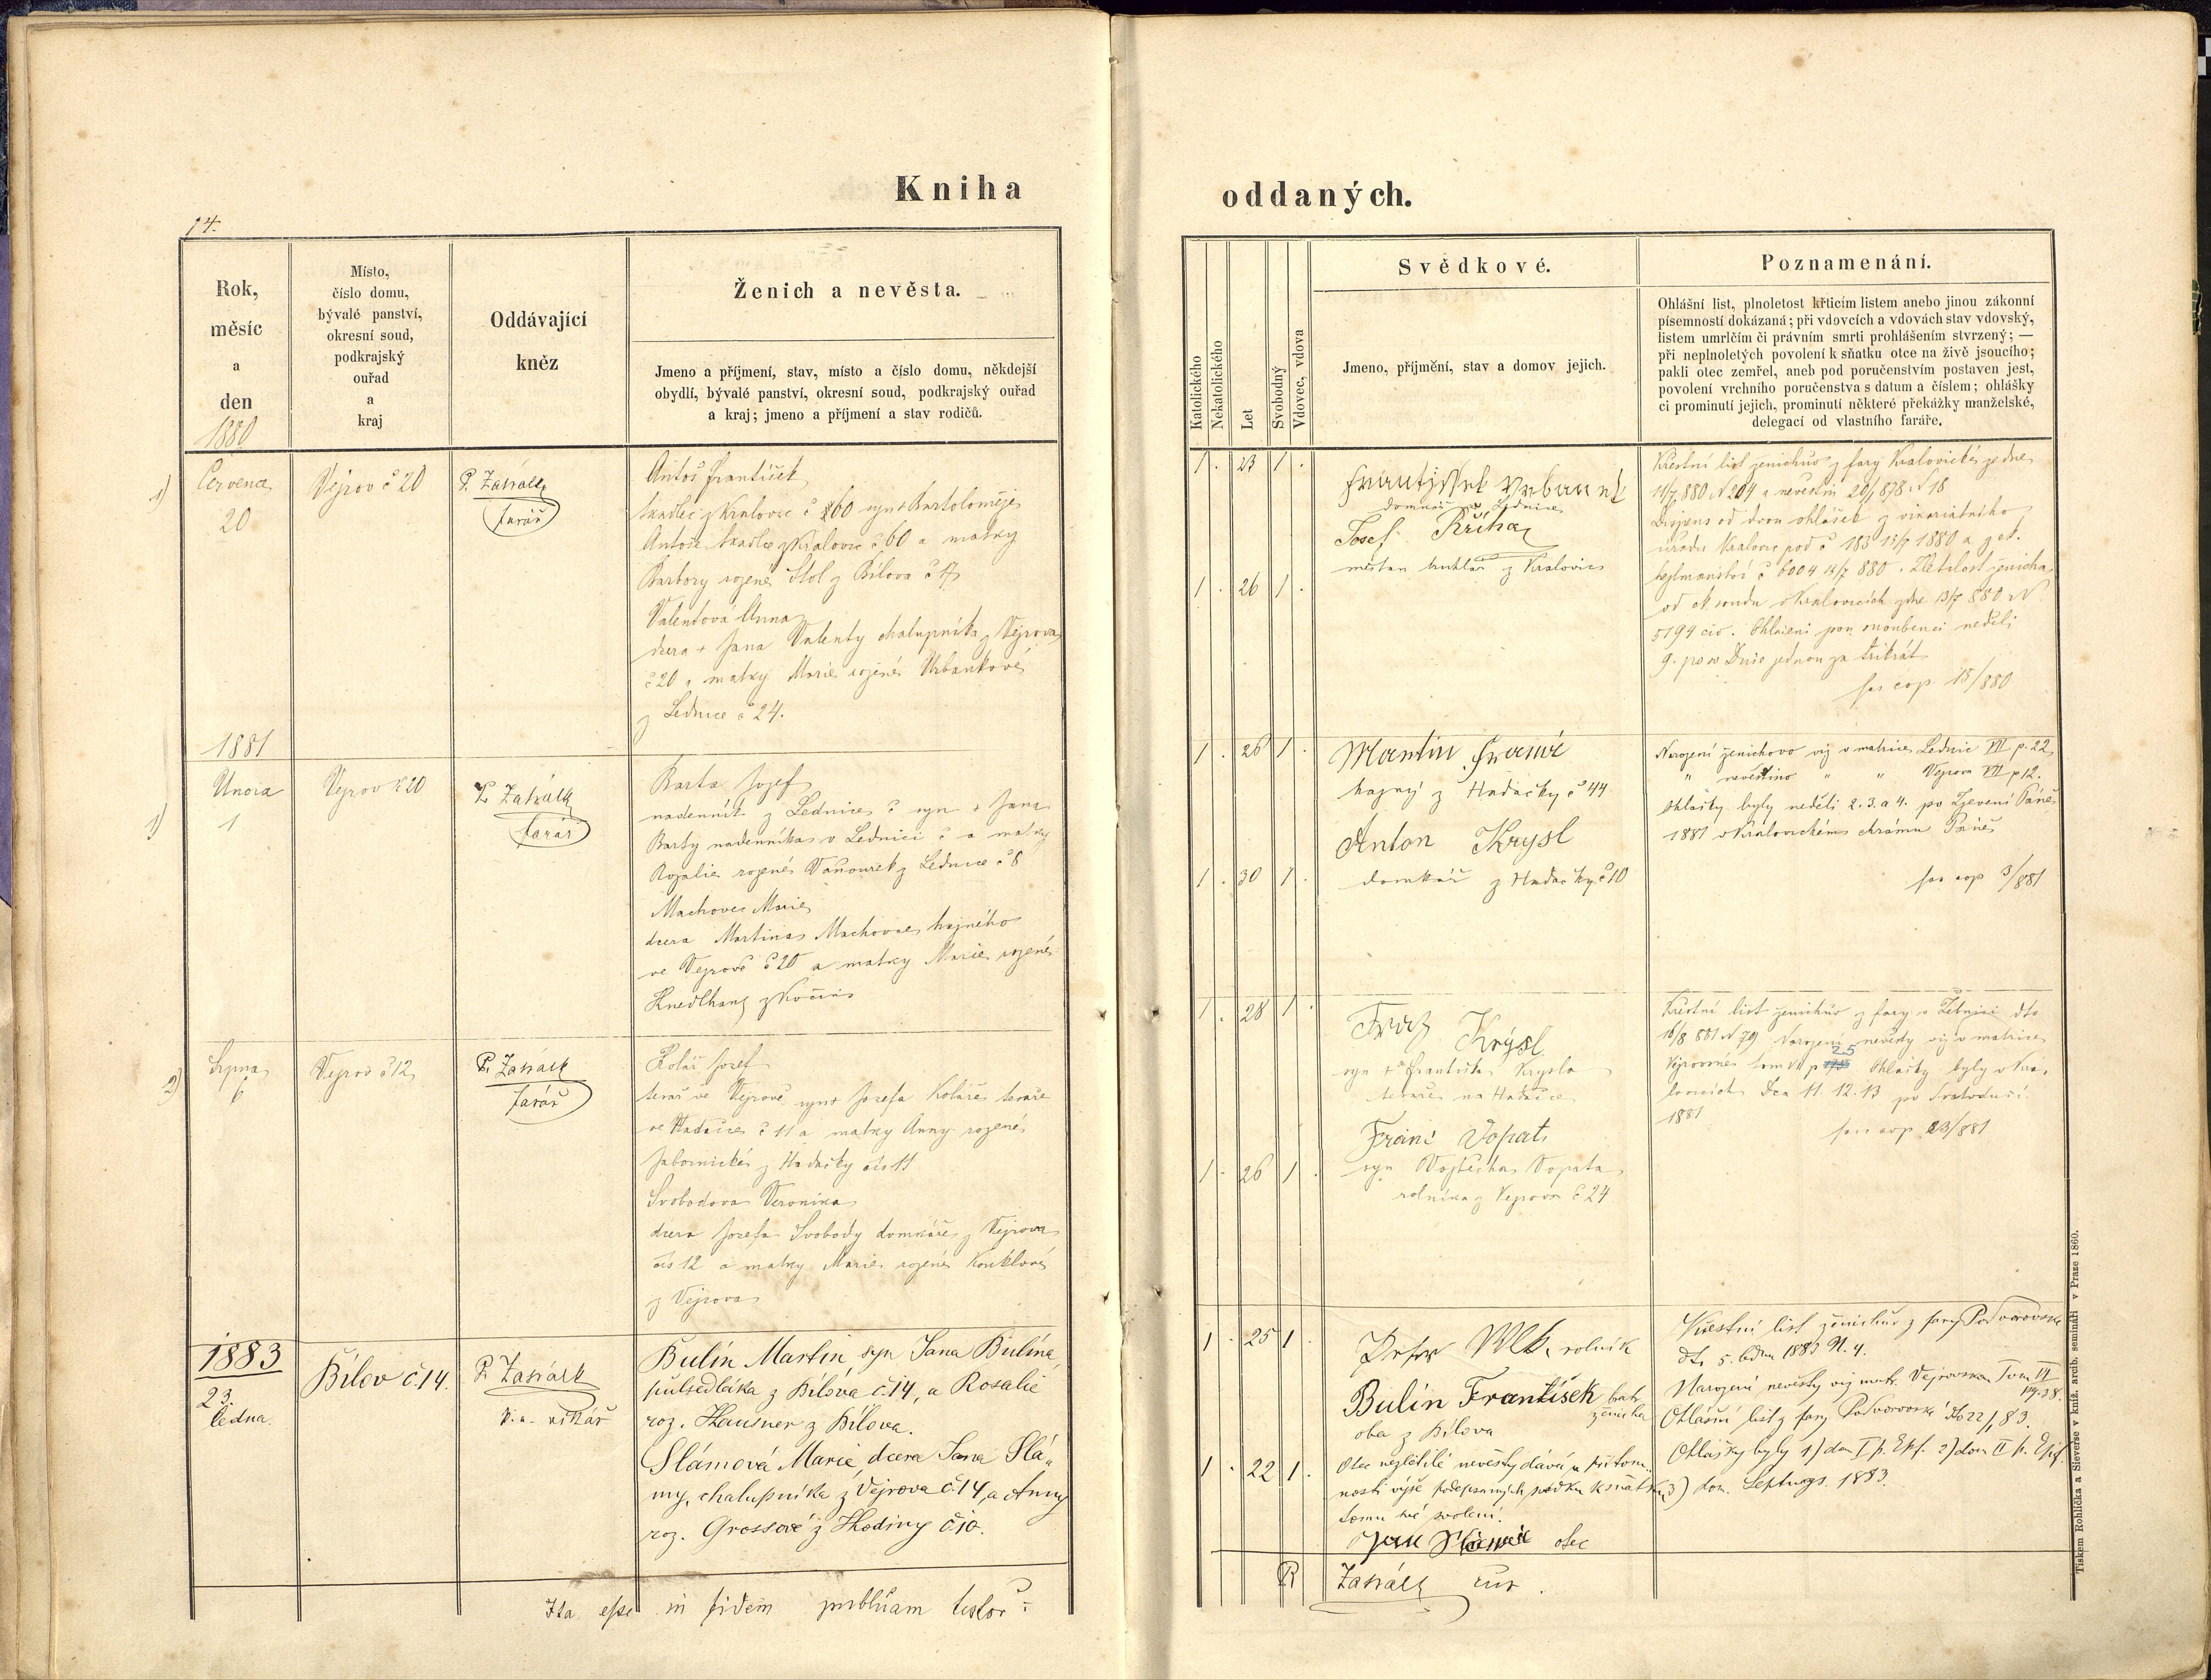 Kniha
14.
Rok,
měsíc
a
den
1880
Místo,
číslo domu,
bývalé panství,
okresní soud,
podkrajský
ouřad
a
kraj
Oddávající
kněz
Ženich a nevěsta.
Jmeno a příjmení, stav, místo a číslo domu, někdejší
obydlí, bývalé panství, okresní soud, podkrajský ouřad
a kraj; jmeno a příjmení a stav rodičů.
1)
Července
20
Vejrov č 20
P.
farář
Antoš František
tkadlec z Kralovic č 60 syn + Bartoloměje
Antoše tkadlce z Kralovic č 60 a matky
Barbory rozené Stol z Bílova č 17
Valentová Anna
dcera + Jana Valenty chalupníka z Vejrova
č 20 a matky Marie rozené Urbankové
z Lednice č 24.
1881
1)
Února
1
Vejrov č 20
P.
farář
Barta Josef
nadenník z Lednice č syn + Jana
Barty nadenníka v Lednici č a matky
Rozalie rozené Vaňourek z Lednice č 8
Machovec Marie
dcera Martina Machovce hajného
ve Vejrově č 20 a matky Marie rozené
Knedlhans z
2)
Srpna
6
Vejrov č 12
P.
farář
Kolář Josef
tesař ve Vejrově syn + Josefa Koláře tesaře
ve Hadačce č 11 a matky Anny rozené
z Hadačky čís 11
Svobodova Veronika
dcera Josefa Svobody domkáře z Vejrova
čís 12 a matky Marie rozené Kouklové
z Vejrova
1883
23.
ledna.
Bílov č. 14.
P.
vikář
Bulín Martin, syn Jana Bulína,
půlsedláka z Bílova č. 14, a Rosalie
roz. Hausner z Bílova.
Slámová Marie, dcera Jana Slá„
my, chalupníka z Vejrova č. 14, a Anny
roz. Grossové z Hodiny č. 10.
Ita esse in fidem publicam testor:
oddaných.
Katolického
Nekatolického
Let
Svobodný
Vdovec, vdova
Svědkové.
Jmeno, příjmění, stav a domov jejich.
Poznamenání.
Ohlášní list, plnoletost křticím listem anebo jinou zákonní
písemností dokázaná; při vdovcích a vdovách stav vdovský,
listem umrlčím či právním smrti prohlášením stvrzený; —
při neplnoletých povolení k sňatku otce na živě jsoucího;
pakli otec zemřel, aneb pod poručenstvím postaven jest,
povolení vrchního poručenstva s datum a číslem; ohlášky
ci prominutí jejich, prominutí některé překážky manželské,
delegací od vlastního faráře.
1 . 23 1 .
František Urbanek
domkář z Lednice
Josef Říha
měšťan truhlář z Kralovic
1 . 26 1 .
Křestní list ženichův z fary Kralovické ze dne
11/7 880 N 204 a nevěstin 20/1 878 N 18
Dispens od dvou ohlášek z vikariátního
úřadu Kralovic pod č 183 15/7 1880 a z ct.
hejtmanství č 6004 14/7 880. Zletilost ženicha
od ok soudu v Kralovicích zdne 13/7 880 N
5194 civ. Ohlášeni jsou snoubenci neděli
9. po sv Duše jednou za třikrát
fas cop. 15/880
1 . 26 1 .
Martin
hajný z Hadačky č 44
Anton Krysl
domkář z Hadačky č 10
1 . 30 1 .
Narození ženichovo viz v matrice Lednic VII p. 22
" nevěstino " " Vejrov VII p 12.
Ohlášky byly neděli 2. 3. a 4. po Zjevení Páně
1881 v Kralovickém chrámu Páně
fas cop 3/881
1 . 28 1 .
Franz Krýsl
syn + Františka Krysla
tesaře na Hadačce
Franc Vopat
syn Vojtěcha Vopata
rolníka z Vejrova č 24
1 . 26 1 .
Křestní list ženichův z fary v Žebnici dto
16/8 881 N 79 Narození nevěsty viz v matrice
Vejrovské tom VII p 25 Ohlášky byly v Kra„
lovicích dca 11. 12. 13 po Svatoduší
1881
fas cop 23/881
1 . 25 1 .
Petr Vlk, rolník
Bulín František bratr
ženicha
oba z Bílova
1 . 22 1 .
Otec nezletilé nevěsty dává u přítom„
nosti výše podepsaných svědků k sňatku
tomu své svolení.
Jan Sláma otec
Křestní list ženichův z fary Potvorovské
dto 5. ledna 1883 N. 4.
Narození nevěsty viz matr. Vejrovskou Tom VI
pag. 38.
Ohlášní list z fary Potvorovské dto 22/1 83.
Ohlášky byly 1) dom I p. Epf. 2) dom II p. Epif.
3) dom. Septuags. 1883.
Tiskem Rohlíčka a Sieverse v kníž. arcib. semináři v Praze 1860.